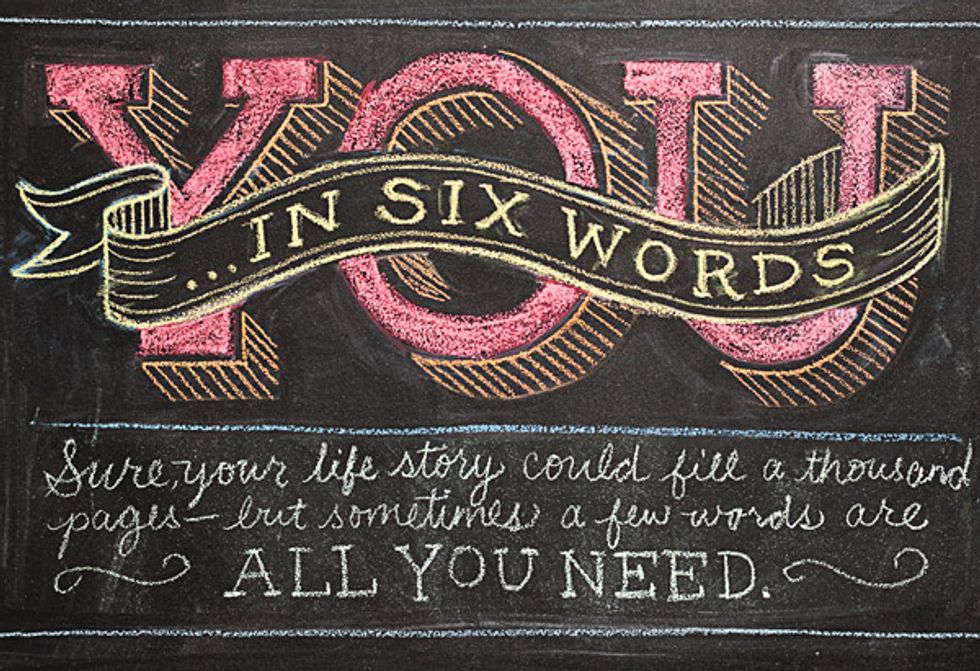 YOU
...IN SIX WORDS
Sure, your life story could fill a thousand
pages—but sometimes a few words are
ALL YOU NEED.